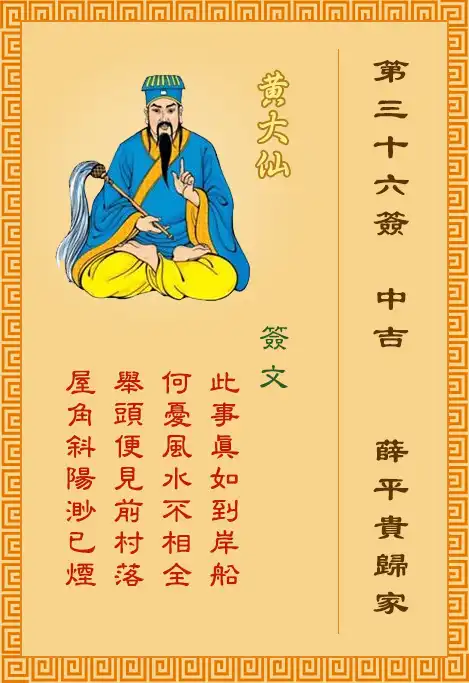 第三十六簽 中吉 薛平貴歸家
黃大仙
簽文
此事眞如到岸船
何憂風水不相全
舉頭便見前村落
屋角斜陽渺已煙